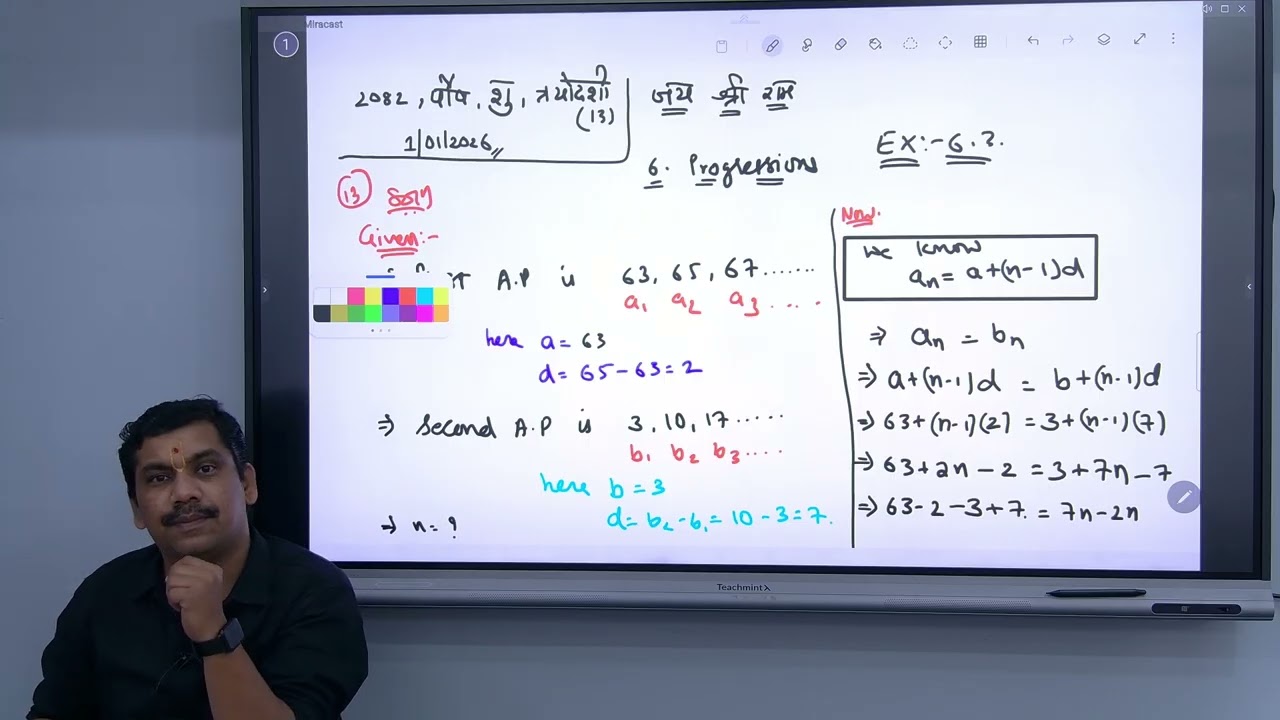 Miracast
1
2082, पौष, शु, त्रयोदशी
(13)
1/01/2026
जय श्री राम
Ex:- 6.2.
6. Progressions
(13)
Given:-
A.P is 63, 65, 67.......
a₁ a₂ a₃ ....
here a = 63
d = 65-63=2
⇒ Second A.P is 3, 10, 17.....
b₁ b₂ b₃....
here b = 3
d = b₂-b₁ = 10-3=7.
⇒ n = ?
Now.
We know
aₙ = a+(n-1)d
⇒ aₙ = bₙ
⇒ a+(n-1)d = b+(n-1)d
⇒ 63+(n-1)(2) = 3+(n-1)(7)
⇒ 63+2n-2 = 3+7n-7
⇒ 63-2-3+7. = 7n-2n
Teachmint X